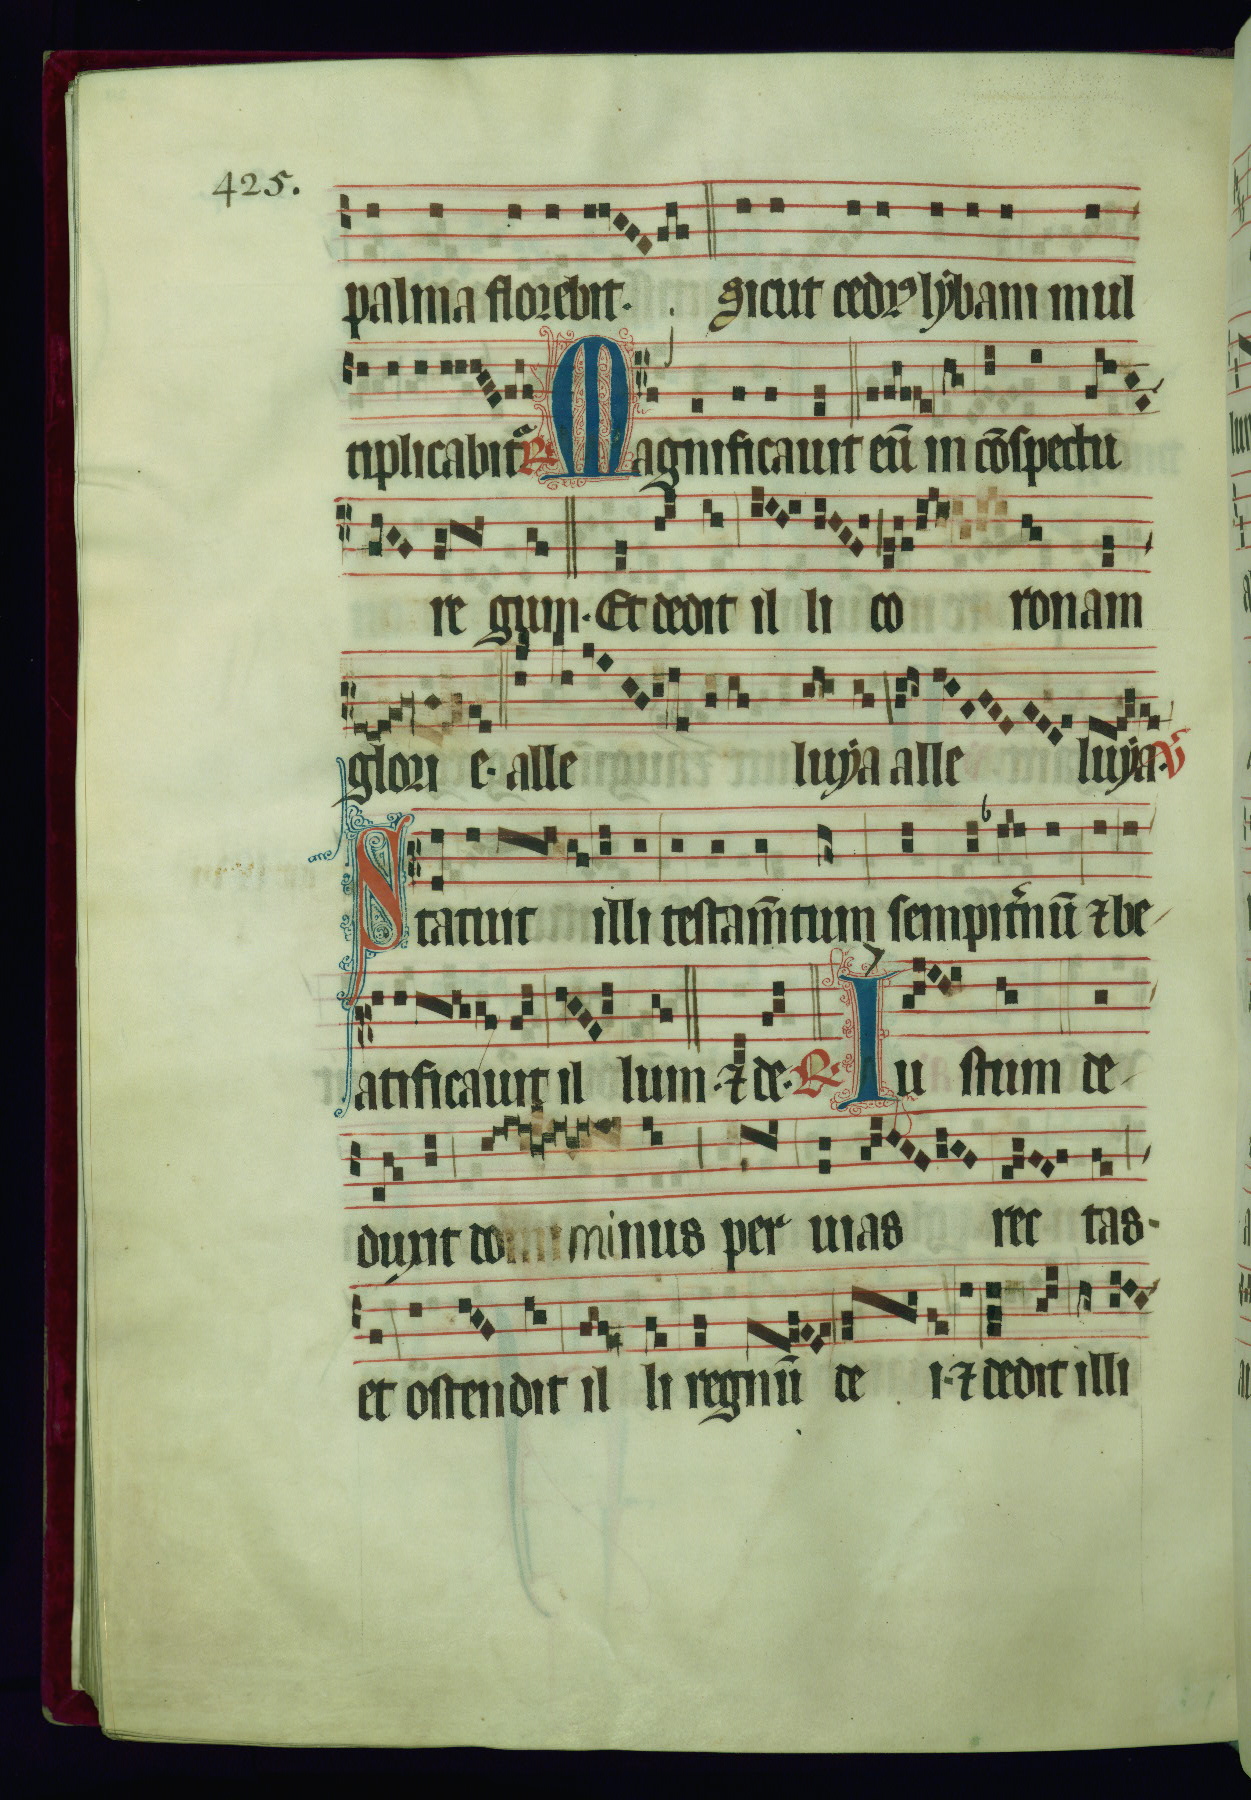 425.
palma florebit. Sicut cedrꝰ lybani mul
tiplicabit᷑ ℟ Magnificauit eū in cōspectu
re gum. Et dedit il li co ronam
glori e. alle luya alle luya. ℣
Statuit illi testam̄tum sempit̄nū ⁊ be
atificauit il lum. ⁊ de. ℟ Iu stum de
duxit do minus per uias rec tas.
et ostendit il li regnū de i. ⁊ dedit illi